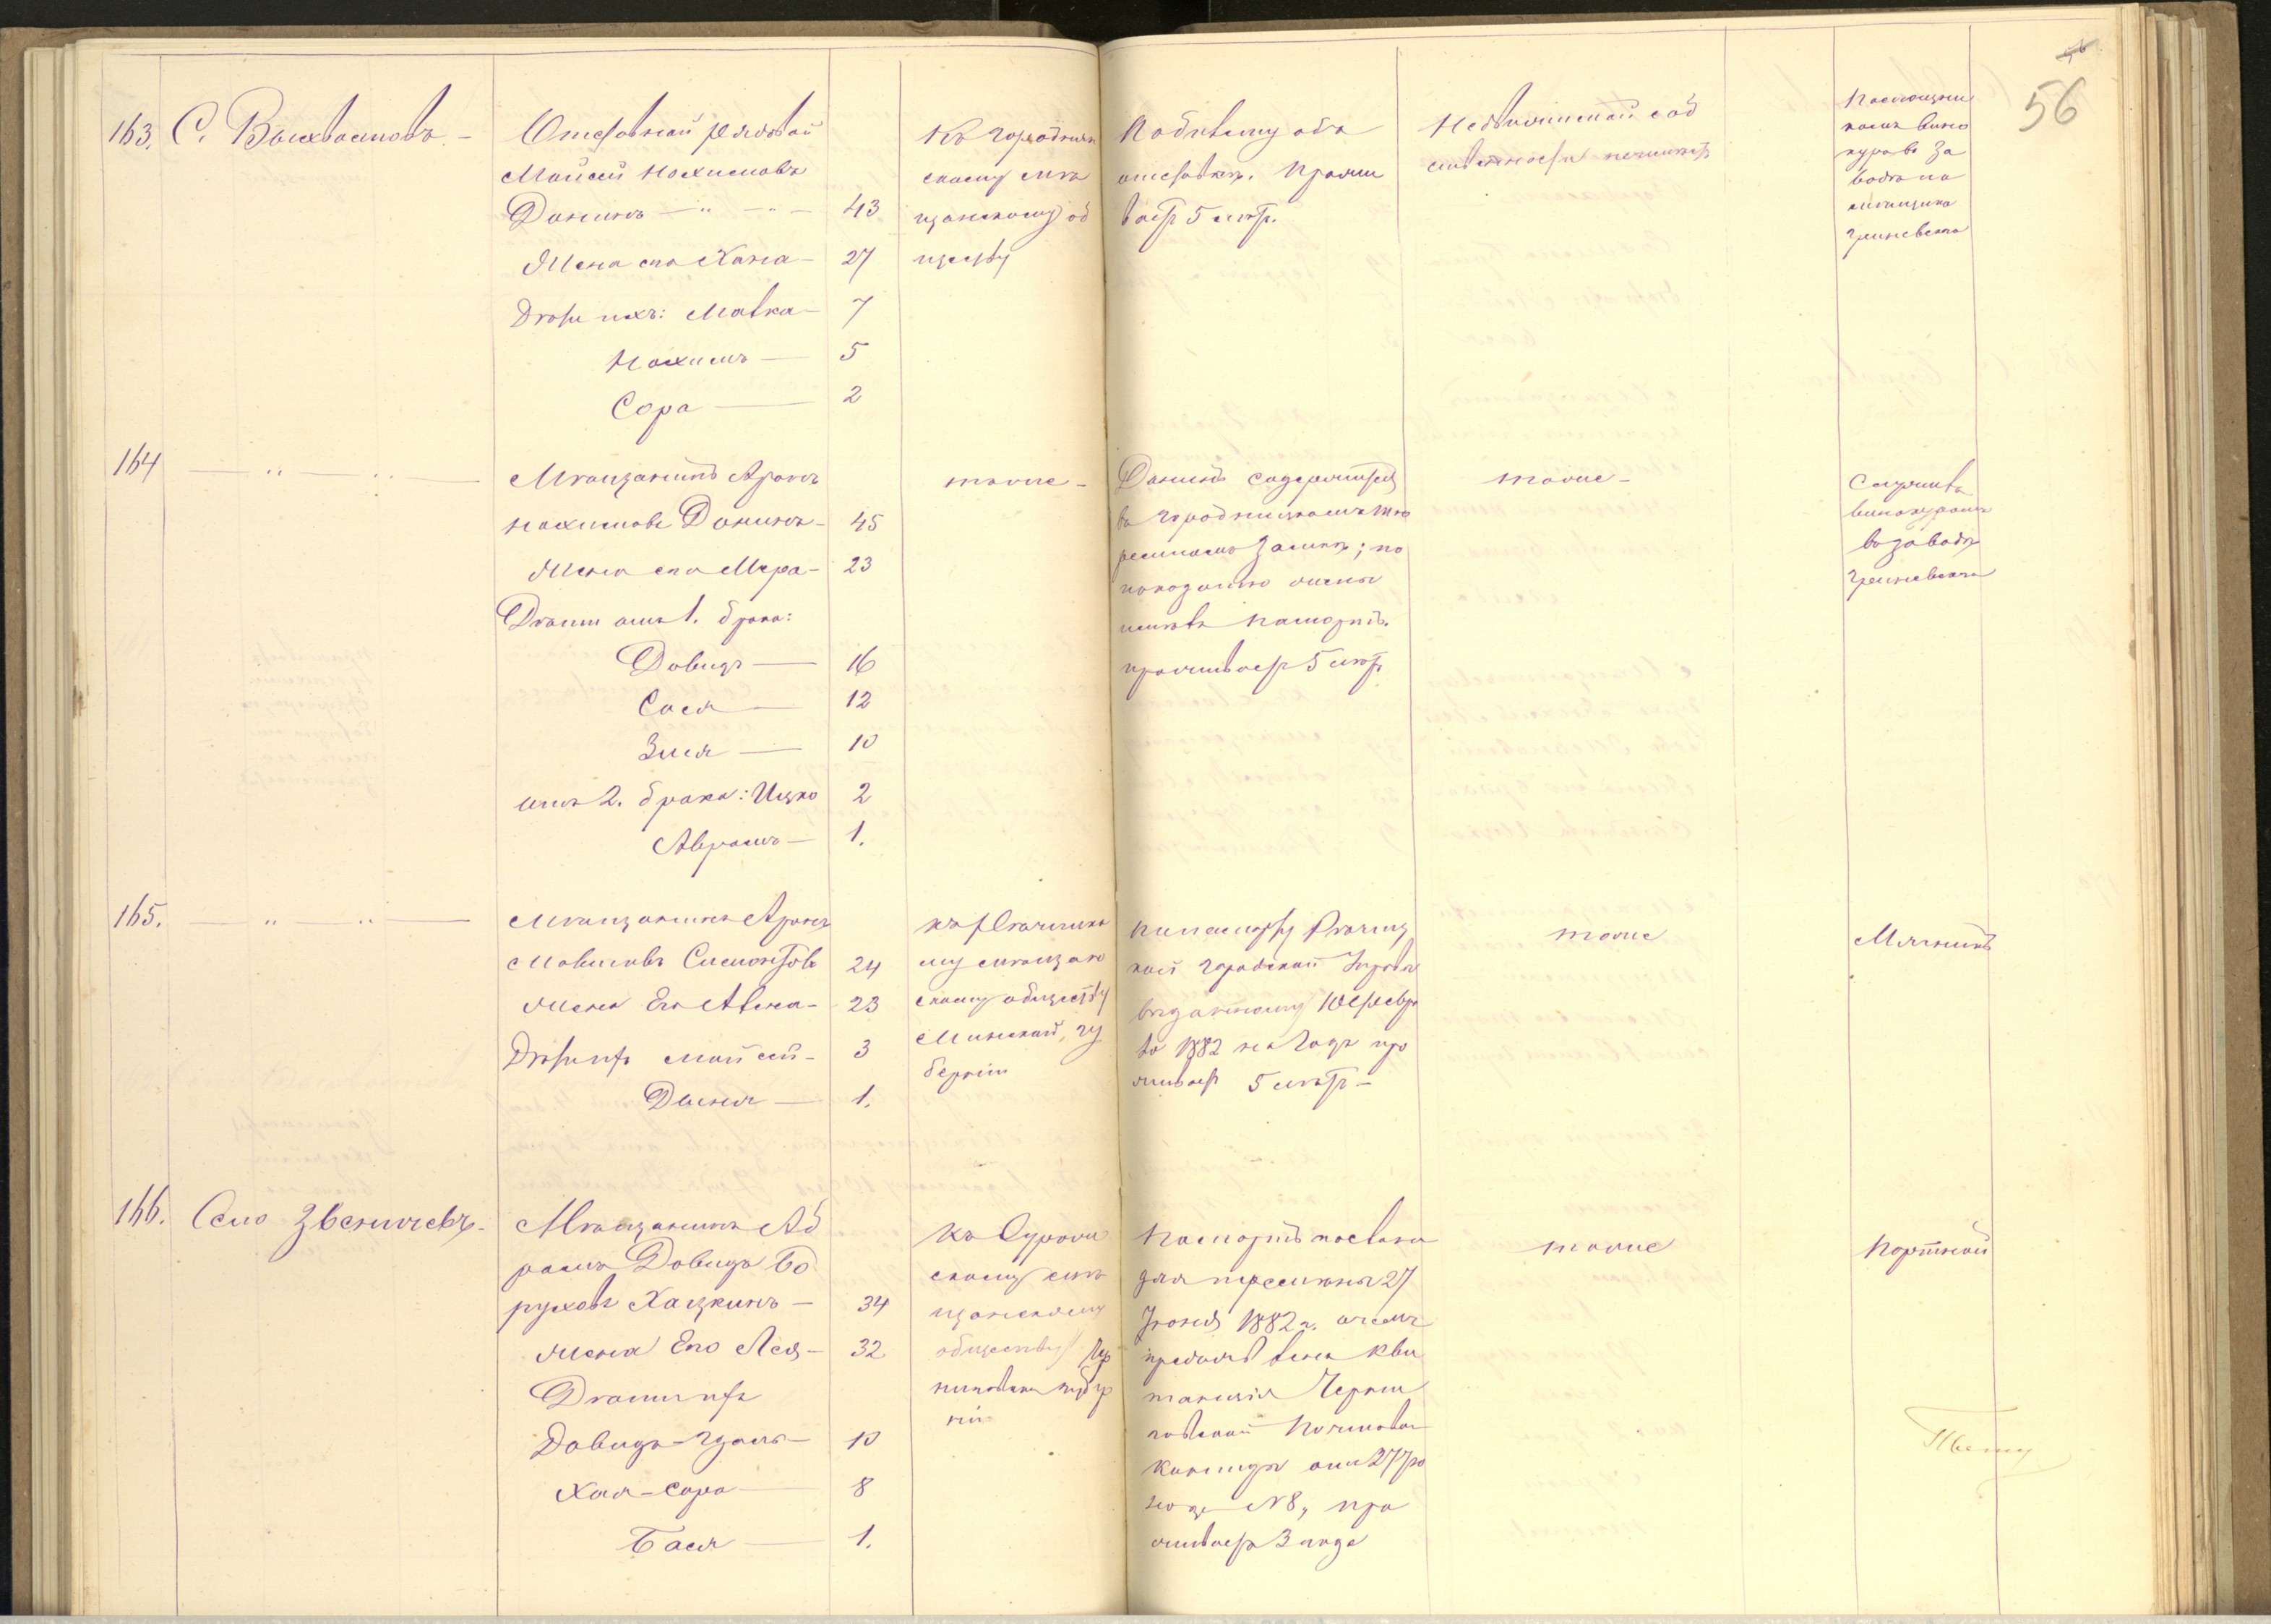 56
163. С. Выхвостовъ. —
Отставной рядовой
Мойсей Нохимовъ
Донинъ — " — " — 43
Жена его Хана — 27
Дѣти ихъ: Мовка — 7
Нохимъ — 5
Сора — 2
Къ Городнян
скому мѣ
щанскому об
ществу
По билету объ
отставкѣ. Прожи
ваетъ 5 лѣтъ.
Недвижимой соб
ственности не имѣетъ
вино
кур. во за
водѣ по
мѣщика
164 — " — " —
Мѣщанинъ Аронъ
Нохимовъ Донинъ — 45
Жена его Мера — 23
Дѣти отъ 1. брака:
Довидъ — 16
Сося — 12
Зися — 10
отъ 2. брака: Ицко 2
Аврамъ — 1.
тоже —
Донинъ содержится
въ Городницкомъ тю
ремномъ замкѣ; по
показанію жены
имѣетъ паспортъ.
проживаетъ 5 лѣтъ
тоже —
винокуромъ
въ заводѣ
165. — " — " —
Мѣщанинъ Аронъ
Мовшовъ 24
Жена Его — 23
Дѣти ихъ Мойсей — 3
Двейля — 1.
къ Рѣчицко
му мѣщан
скому обществу
Минской, гу
берніи
По паспорту Рѣчиц
кой городской Управы
выданному 10 Февр
во 1882 на Годъ про
живаетъ 5 лѣтъ —
тоже
Мясникъ
166. Село Звеничевъ. —
Мѣщанинъ Аб
рамъ Довидъ Бо
руховъ Хацкинъ — 34
Жена Его Лея — 32
Дѣти ихъ
Довидъ — 10
Хая-Сора — 8
Бася — 1.
къ Суражи
скому мѣ
щанскому
обществу Чер
ниговской губер
ніи
Паспортъ посланъ
для перемѣны 27
Іюня 1882 г. о чемъ
предъявлена кви
танція Черни
говской Почтовой
Конторы отъ 27 Iю
ня за №8, про
живаетъ 3 года
тоже
Портной